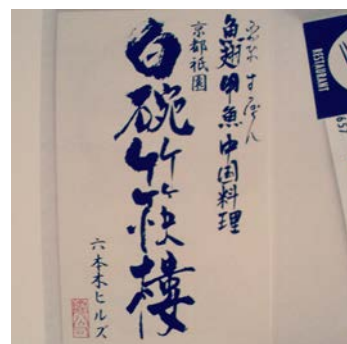 魚翅甲魚中国料理
京都祇園
白碗竹筷樓
六本木ヒルズ
RESTAURANT